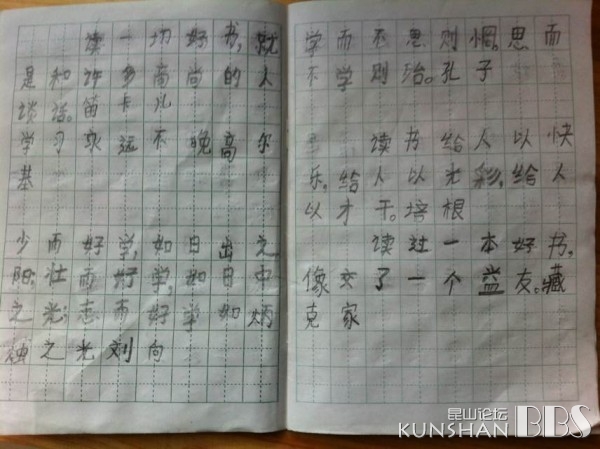 读一切好书,就
是和许多高尚的人
谈话。笛卡儿
学习永远不晚高尔
基
少而好学,如日出之
阳;壮而好学,如日中
之光;志而好学如炳
烛之光刘向
学而不思则惘。思而
不学则殆。孔子
读书给人以快
乐,给人以光彩,给人
以才干。培根
读过一本好书,
像交了一个益友。藏
克家
昆山论坛
KUNSHAN BBS